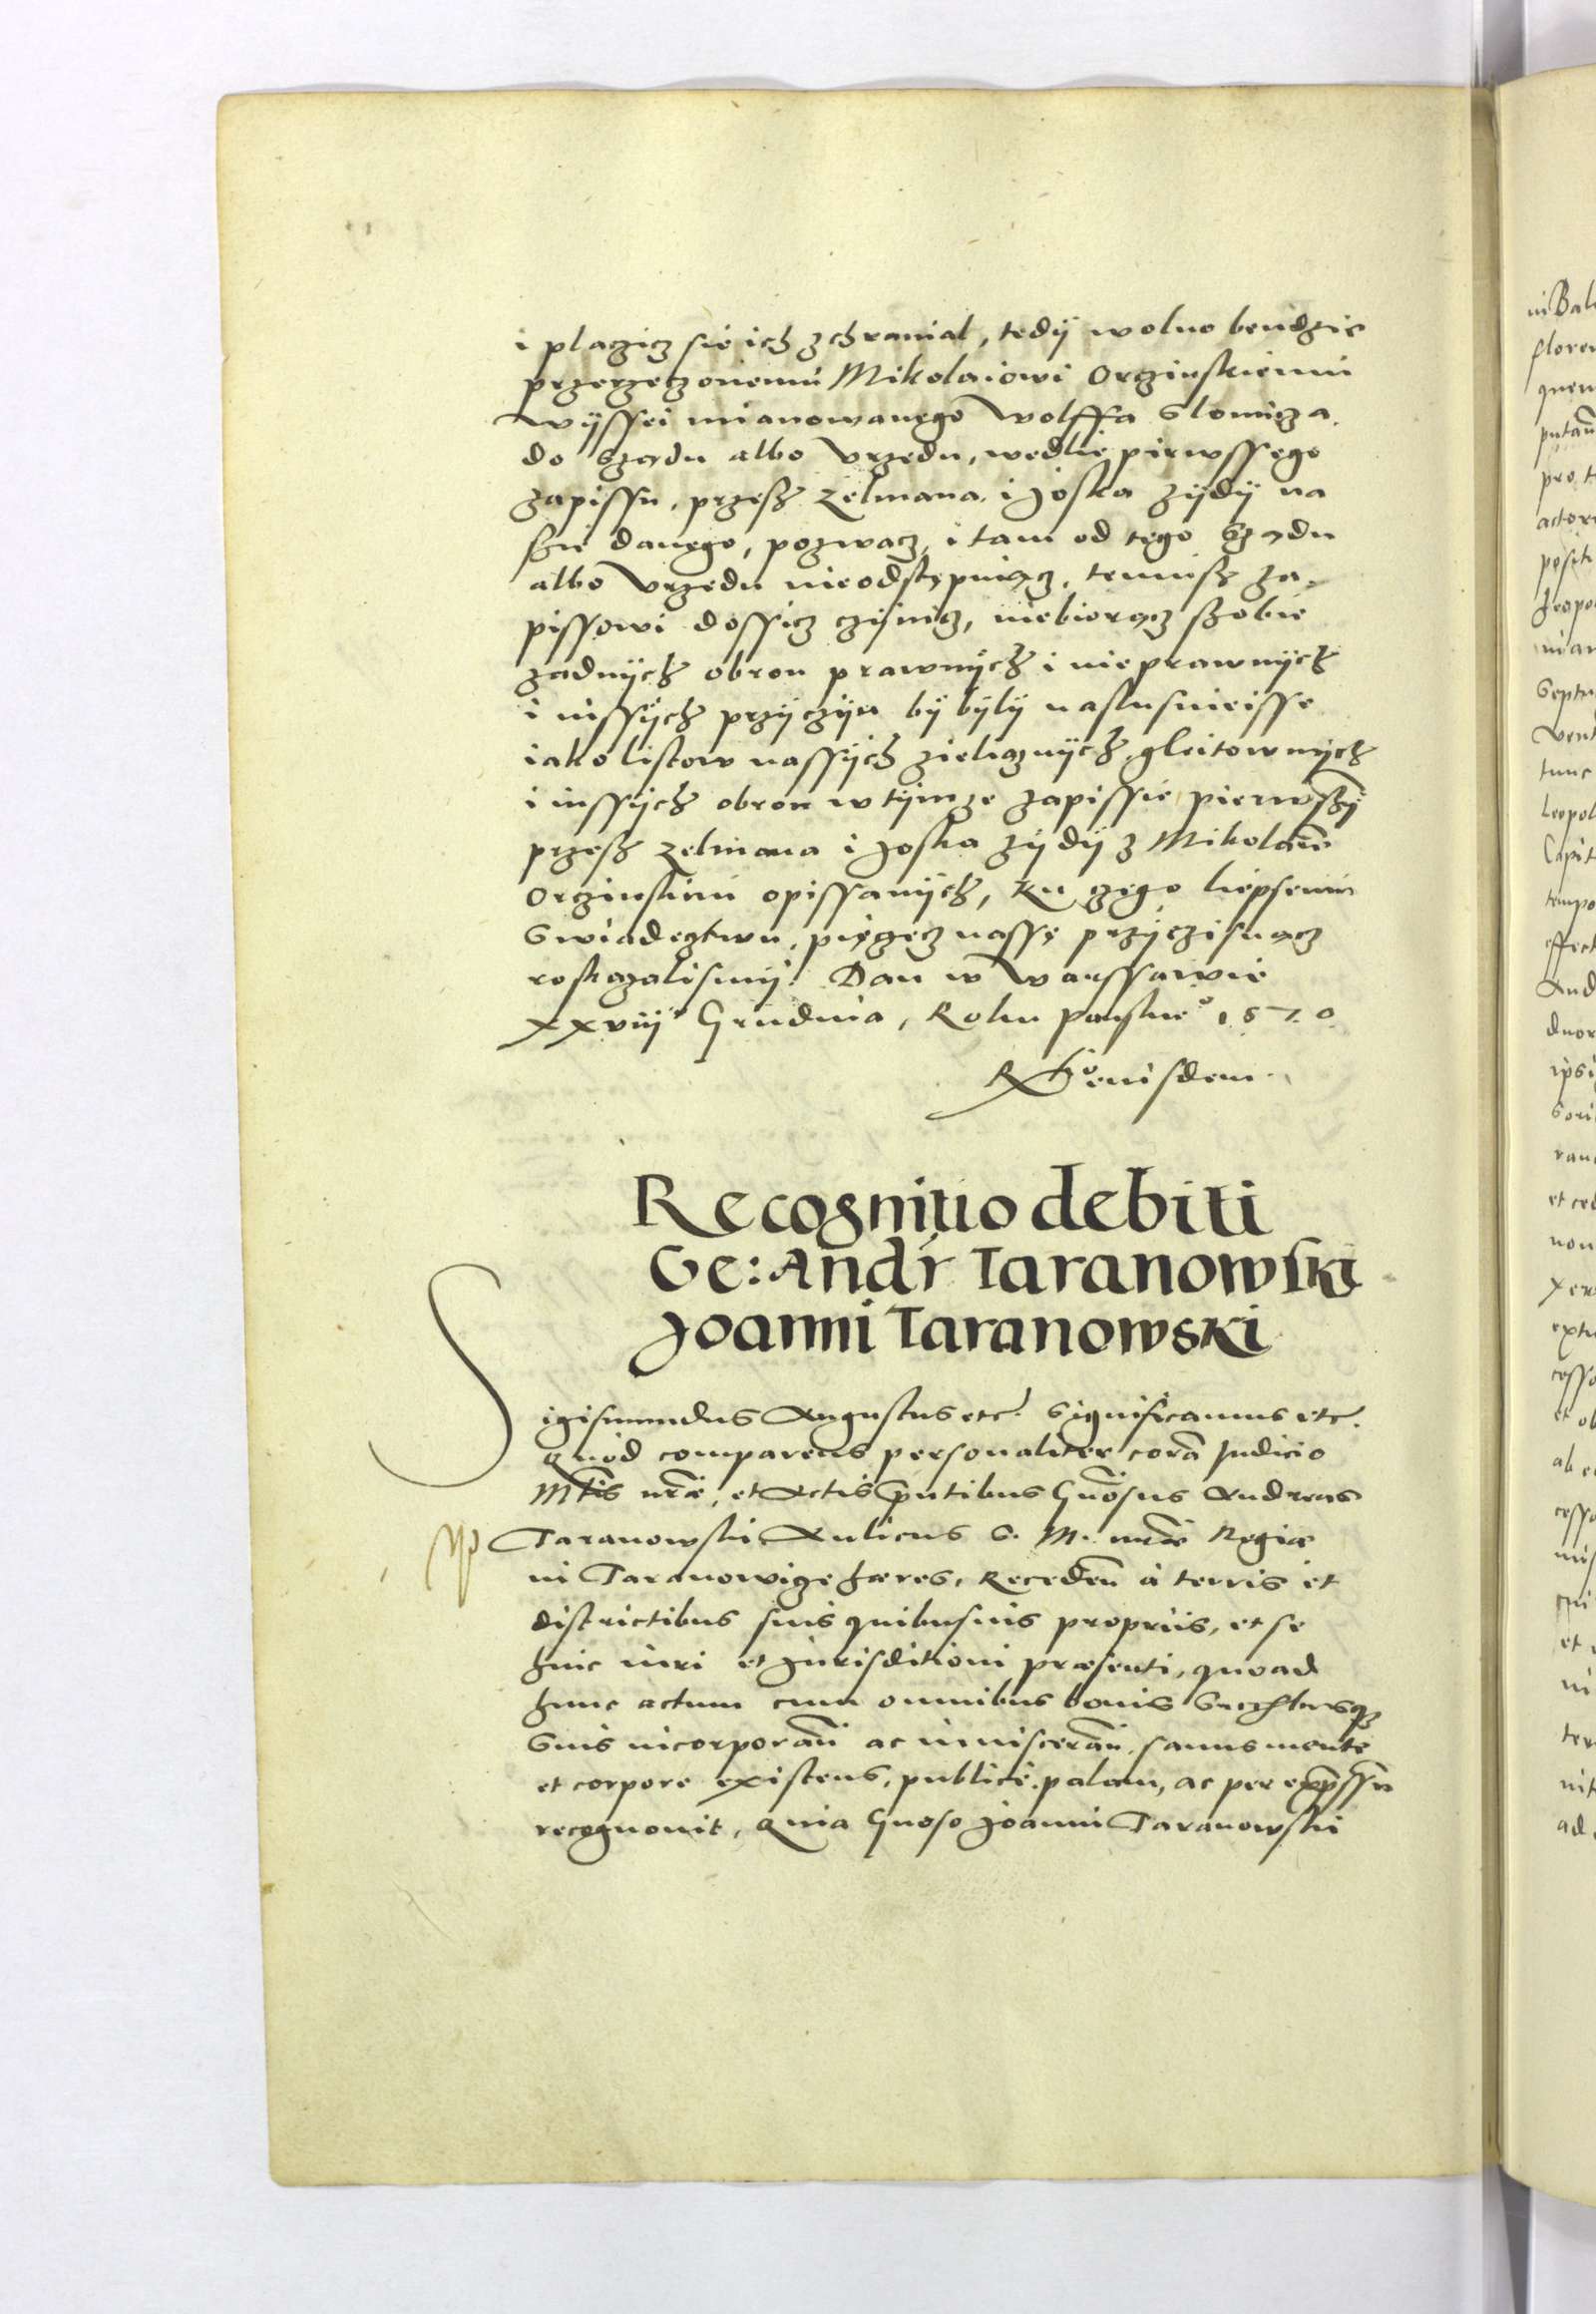 i placzicz sie ich zchranial, tedÿ wolno bendzie
przerzeczonemu Mikolaiowi Orczinskiemu
wÿssei mianowanego Wolffa Slomicza
do Sządu albo Vrzędu, wedlie pirwssego
zapissu, przesz Zelmana i Joska zÿdÿ na
szie danego, pozwacz, i tam od tego Sządu
albo Vrzędu nieodstępuiącz, temusz za-
pissowi dossicz czÿnicz, niebiorącz szobie
zadnÿch obron prawnÿch i nieprawnÿch
i inssÿch przÿczÿn bÿ bÿlÿ naslusnieisse
iako listow nassÿch zielaznÿch, gleitownÿch
i inssÿch obron w tÿmze zapissie pierwszÿ
przesz Zelmana i Joska zÿdÿ z Mikolaiē
Orczinskim opissanÿch, Ku czego liepsemu
Swiadecztwu, pięczęcz nassę przÿczisnącz
roskazalismÿ. Dan w Warssawie
XXviij Grudnia, Roku panskieᵒ 1570
Rᵒ eiusdem.
Recognitio debiti
Ge: Andr Taranowski
Joanni Taranowski
Sigismundus Augustus etc. Significamus etc.
Quod comparens personaliter corā Judicio
Mtis nrae, et Actis pntibus Gnosus Andreas
Taranowski Aulicus S. M. nrae Regiae
in Taranowize haeres, Recedeñ à terris et
districtibus suis quibusuis propriis, et se
huic iuri et Jurisditioni praesenti, quoad
hunc actum cum omnibus bonis Successoribusq
Suis incorporañ ac inuiscerañ, sanus mente
et corpore existens, publicè, palam, ac per expssum
recognouit, Quia Gnoso Joanni Taranowski